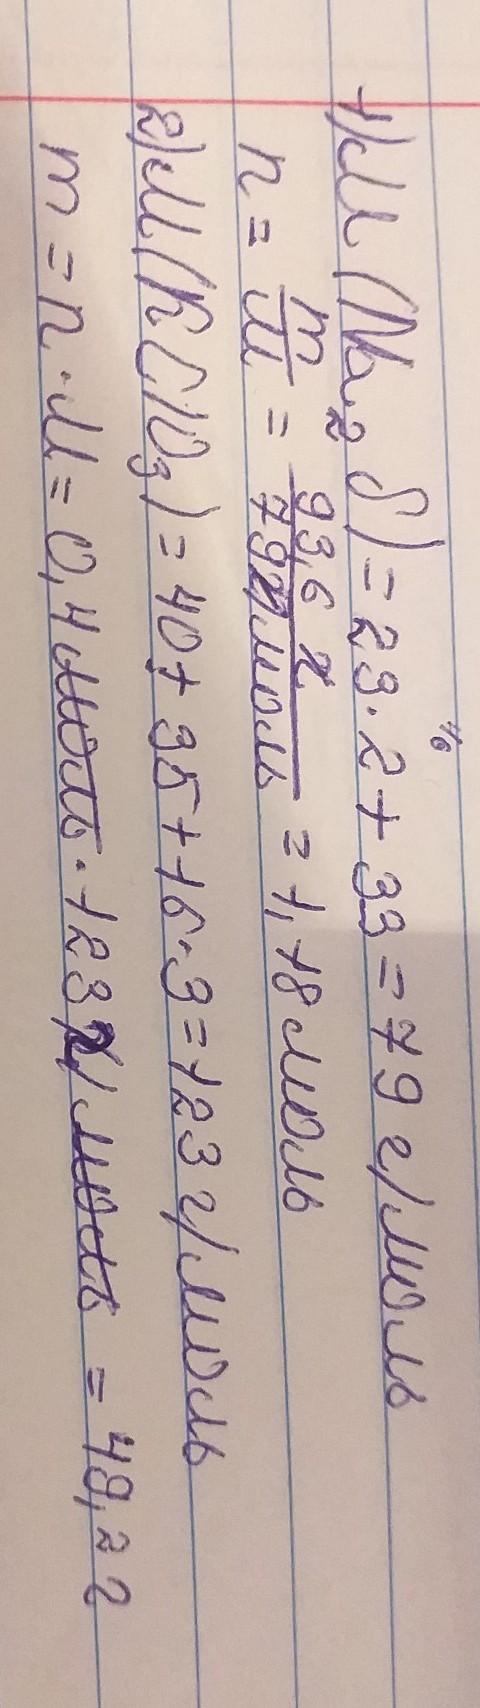 1) M (Na₂S) = 23·2 + 33 = 79 г/моль
n = m/M = 93,6 г / 79 г/моль = 1,18 моль
2) M (KClO₃) = 40 + 35 + 16·3 = 123 г/моль
m = n·M = 0,4 моль · 123 г/моль = 49,2 г